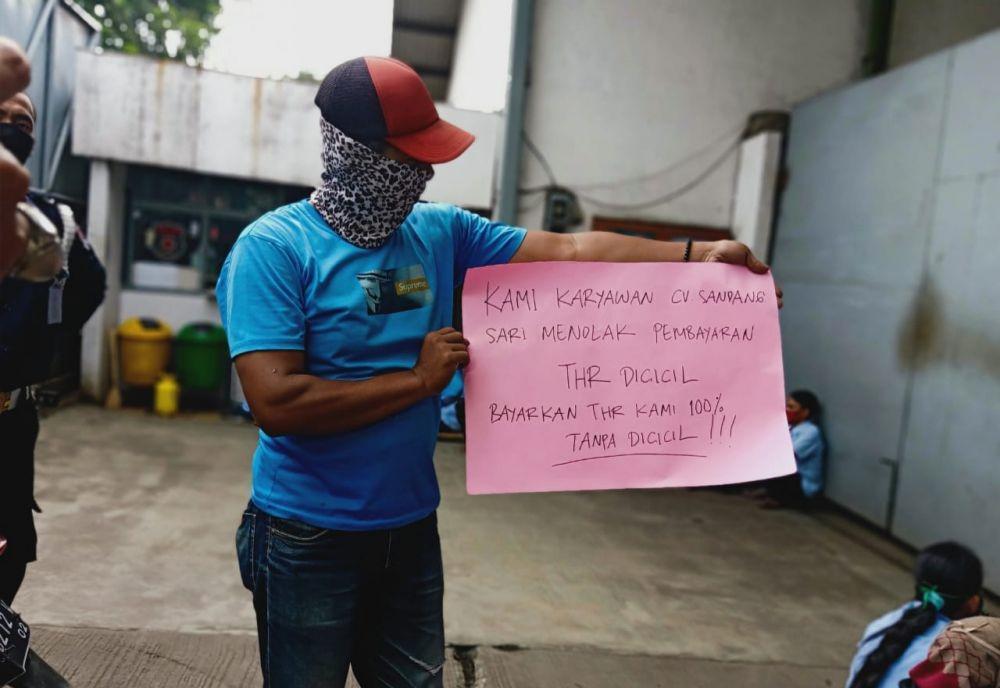 Supreme
KAMI KARYAWAN CV SANDANG
SARI MENOLAK PEMBAYARAN
THR DICICIL
BAYARKAN THR KAMI 100%
TANPA DICICIL !!!